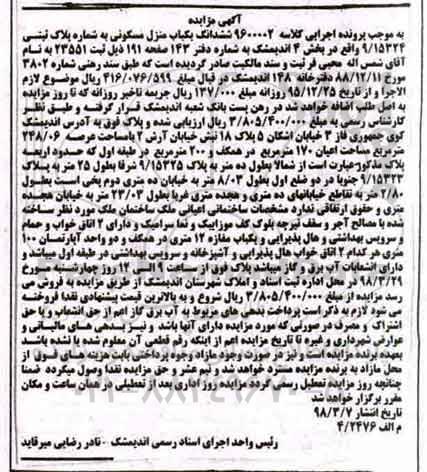 آگهی مزایده
به موجب پرونده اجرایی کلاسه ۹۶۰۰۰۰۲ ششدانگ یکباب منزل مسکونی به شماره پلاک ثبتی
۹/۱۵۳۲۴ واقع در بخش ۴ اندیمشک به شماره دفتر ۱۴۳ صفحه ۱۹۱ ذیل ثبت ۲۳۵۵۱ به نام
آقای شمس اله محبی فر ثبت و سند مالکیت صادر گردیده است که طبق سند رهنی شماره ۳۸۰۲
مورخ ۸۸/۱۲/۱۱ دفترخانه ۱۴۸ اندیمشک در قبال مبلغ ۴۱۶/۰۷۶/۵۹۹ ریال موضوع لازم
الاجرا و از تاریخ ۹۵/۱۲/۲۵ روزانه مبلغ ۱۳۷/۰۰۰ ریال جریمه تاخیر روزانه که تا روز مزایده
به اصل طلب اضافه خواهد شد در رهن پست بانک شعبه اندیمشک قرار گرفته و طبق نظر
کارشناس رسمی به مبلغ ۳/۸۰۵/۴۰۰/۰۰۰ ریال ارزیابی شده و پلاک فوق به آدرس اندیمشک
کوی جمهوری فاز ۳ خیابان اشکان ۵ پلاک ۱۸ نبش خیابان آرش ۲ بامساحت عرصه ۲۴۸/۰۶
مترمربع مساحت اعیان ۱۷۰ مترمربع در همکف و ۲۰۰ مترمربع در طبقه اول که حدود اربعه
پلاک مذکور عبارت است از شمالا بطول ده متر به پلاک ۹/۱۵۳۲۵ شرقا بطول ۲۵ متر به پلاک
۹/۱۵۳۲۳ جنوبا در دو ضلع اول بطول ۸/۰۳ متر به خیابان ده متری دوم پخی است بطول
۲/۸۰ متر به تقاطع خیابانهای ده متری و هجده متری غربا بطول ۲۳/۰۳ متر به خیابان هجده
متری و حقوق ارتفاقی ندارد مشخصات ساختمانی اعیانی ملک ساختمان ملک مورد نظر ساخته
شده با مصالح آجر و سقف تیرچه بلوک کف موزاییک و نما سرامیک و دارای ۲ اتاق خواب و حمام
و سرویس بهداشتی و هال پذیرایی و یکباب مغازه ۱۲ متری در همکف و دو واحد آپارتمان ۱۰۰
متری هر کدام ۲ اتاق خواب هال پذیرایی و آشپزخانه و سرویس بهداشتی در طبقه اول میباشد و
دارای انشعابات آب برق و گاز میباشد پلاک فوق از ساعت ۹ الی ۱۲ روز چهارشنبه مورخ
۹۸/۳/۲۹ در محل اداره ثبت اسناد و املاک شهرستان اندیمشک از طریق مزایده به فروش می
رسد مزایده از مبلغ ۳/۸۰۵/۴۰۰/۰۰۰ ریال شروع و به بالاترین قیمت پیشنهادی نقدا فروخته
می شود لازم به ذکر است پرداخت بدهی های مربوط به آب برق گاز اعم از حق انشعاب و یا حق
اشتراک و مصرف در صورتی که مورد مزایده دارای آنها باشد و نیز بدهی های مالیاتی و
عوارض شهرداری و غیره تا تاریخ مزایده اعم از اینکه رقم قطعی آن معلوم شده یا نشده باشد
بعهده برنده مزایده است و نیز در صورت وجود مازاد وجوه پرداختی بابت هزینه های فوق از
محل مازاد به برنده مزایده مسترد خواهد شد و نیم عشر و حق مزایده نقدا وصول میگردد ضمنا
چنانچه روز مزایده تعطیل رسمی گردد مزایده روز اداری بعد از تعطیلی در همان ساعت و مکان
مقرر برگزار خواهد شد
تاریخ انتشار ۹۸/۳/۷
م الف ۴/۲۴۷۶
رئیس واحد اجرای اسناد رسمی اندیمشک - نادر رضایی میرقاید